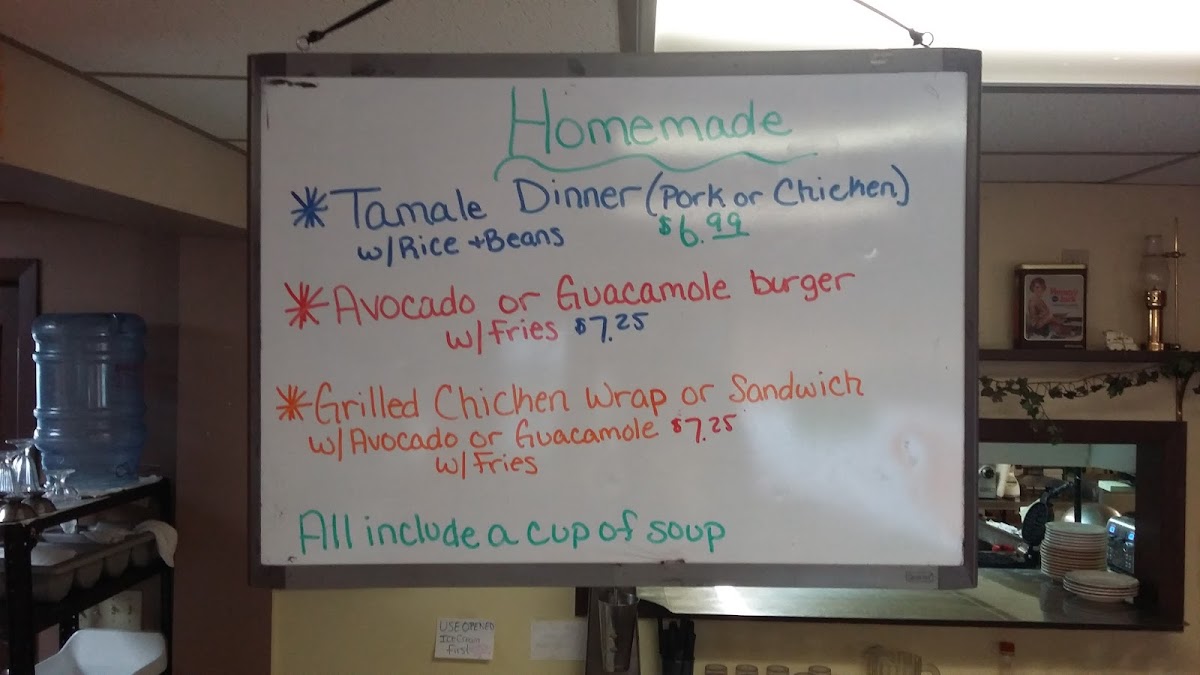 Homemade
* Tamale Dinner (Pork or Chicken)
w/Rice + Beans $6.99
* Avocado or Guacamole burger
w/Fries $7.25
* Grilled Chicken Wrap or Sandwich
w/Avocado or Guacamole $7.25
w/Fries
All include a cup of soup
USE OPENED
Ice Cream
First